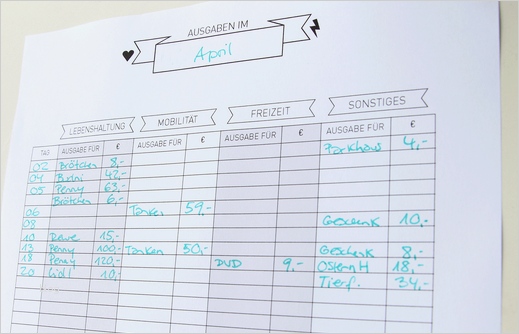 AUSGABEN IM
April
LEBENSHALTUNG MOBILITÄT FREIZEIT SONSTIGES
TAG AUSGABE FÜR € AUSGABE FÜR € AUSGABE FÜR € AUSGABE FÜR €
Parkhaus 4,-
02 Brötchen 8,-
04 42,-
05 Penny 63,-
Brötchen 6,-
06 Tanken 59,-
08 Geschenk 10,-
10 Rewe 15,-
13 Penny 100,- Tanken 50,- Geschenk 8,-
18 Penny 120,- DVD 9,- Ostern H 18,-
20 Lidl 10,- Tierf. 34,-